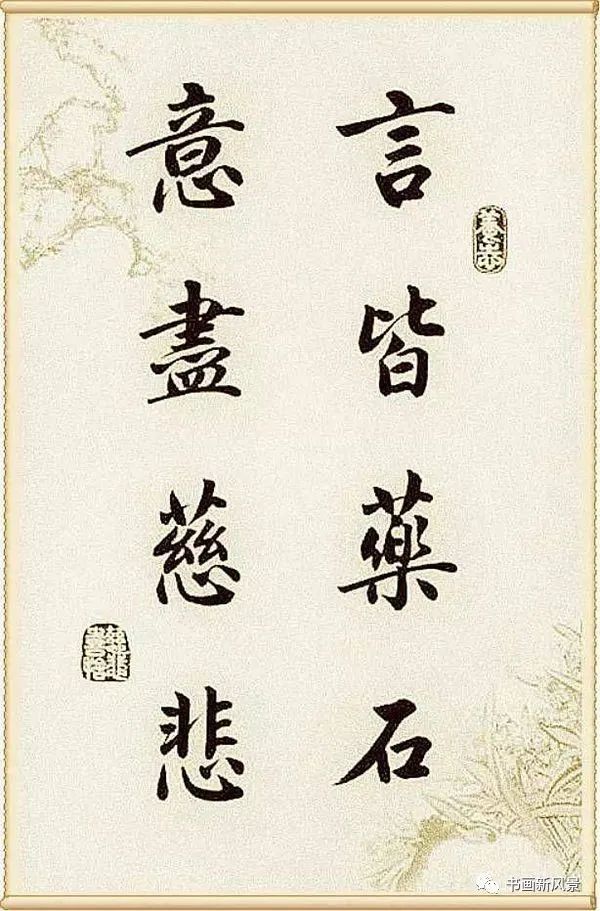 言皆藥石
意盡慈悲
书画新风景